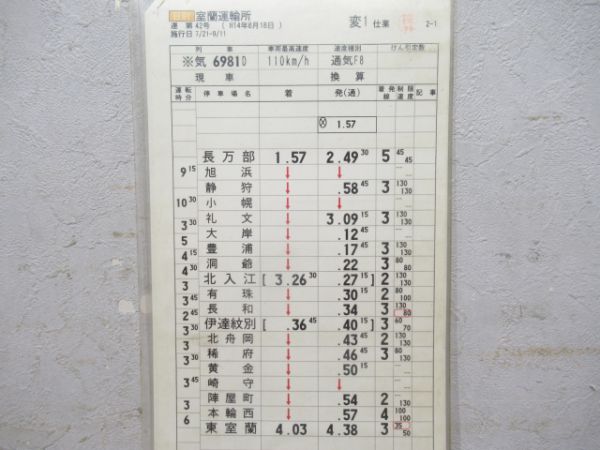 室蘭運輸所 変1 仕業 2-1
達 第 42号 ( H14年6月18日 )
施行日 7/21-9/11
列車 車両最高速度 速度種別 けん引定数
※気 6981D 110km/h 通気F8
現車 換算
運転時分 停車場名 着 発(通) 着発線 制限速度 記事
⊗ 1.57
長万部 1.57 2.49 30 5 45 45
9 15 旭浜 ↓ ↓
静狩 ↓ .58 45 3 130 130
10 30 小幌 ↓ ↓
3 30 礼文 ↓ 3.09 15 3 130 130
5 大岸 ↓ .12 45
4 15 豊浦 ↓ .17 45 3 130 130
4 30 洞爺 ↓ .22 3 80 80
北入江 [ 3.26 30 .27 15 ] 2 130 130
3 有珠 ↓ .30 15 2 80 100
3 45 長和 ↓ .34 3 130 80
2 45 伊達紋別 [ .36 45 .40 15 ] 3 60 70
3 30 北舟岡 ↓ .43 45 2 130
3 稀府 ↓ .46 45 3 130
3 30 黄金 ↓ .50 15
崎守 ↓ ↓
3 45 陣屋町 ↓ .54 2 130
3 本輪西 ↓ .57 4 100 100
6 東室蘭 4.03 4.38 3 35 50